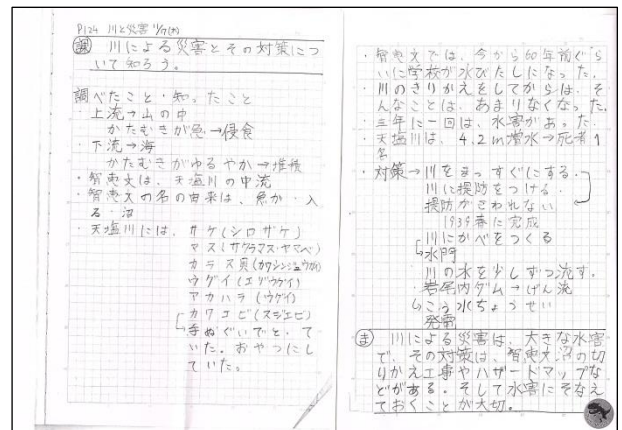 P124 川と災害 11/7(木)
調 川による災害とその対策につ
いて知ろう。
調べたこと・知ったこと
・上流→山の中
かたむきが急→侵食
・下流→海
かたむきがゆるやか→堆積
・智恵文は、天塩川の中流
・智恵文の名の由来は、魚が・入
る・沼
・天塩川には、サケ(シロザケ)
マス(サクラマス・ヤマベ)
カラス貝(カワシンジュウガイ)
ウグイ(エゾウグイ)
アカハラ(ウグイ)
カワエビ(スジエビ)
手ぬぐいでとって
いた。おやつにし
ていた。
・智恵文では、今から60年前ぐら
いに学校が水びたしになった。
・川のきりかえをしてからは、そ
んなことは、あまりなくなった。
・三年に一回は、水害があった。
・天塩川は、4.2m増水→死者1
名
・対策→川をまっすぐにする。
川に提防をつける。
提防がこわれない
1939春に完成
川にかべをつくる
水門
川の水を少しずつ流す。
・岩尾内ダム→げん流
こう水ちょうせい
発電
ま 川による災害は、大きな水害
で、その対策は、智恵文沼の切
りかえ工事やハザードマップな
どがある。そして水害にそなえ
ておくことが大切。